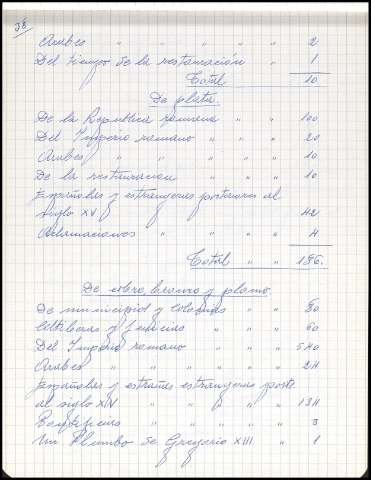 38
Arabes " " " " " 2
Del tiempo de la restauración " 1
Total 10
De plata.
De la Republica romana " " 100
Del Imperio romano " " " 20
Arabes " " " " " 10
De la restauracion " " " 10
Españoles y estrangeros posteriores al
siglo XV 42
Aclamaciones " " " 4
Total " " 186.
De cobre, bronce y plomo
De municipios y colonias " " 80
Celtiberas y fenicias " " 60
Del Imperio romano " " " 540
Arabes " " " " " 24
Españoles y estraños estrangeros poste
al siglo XIV " " " " " 134
Pontificios " " " " 3
Un Plumbo de Gregorio XIII " " 1